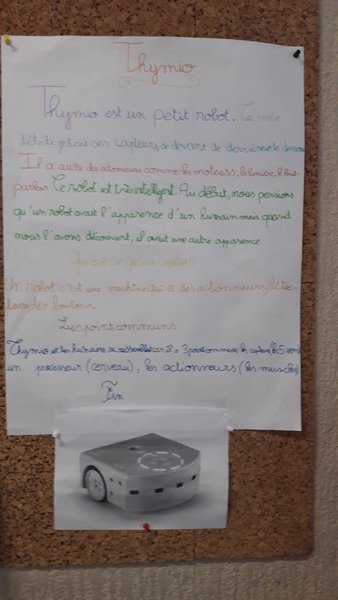 Thymio
Thymio est un petit robot. Ce robot
détecte grâce ses capteurs de devant de derrière et de dessous
Il a aussi des actionneurs comme les moteurs, la lumière, le haut-
parleur. Ce robot est très intelligent. Au début, nous pensions
qu'un robot avait l'apparence d'un humain mais quand
nous l'avons découvert, il avait une autre apparence.
Qu'est-ce qu'un robot?
Un robot c'est une machine qui a des actionneurs, des
des boutons.
Les points communs
Thymio et les humains se ressemblent car il a 3 points communs les capteurs (les 5 sens)
un processeur (cerveau), les actionneurs (les muscles)
Fin